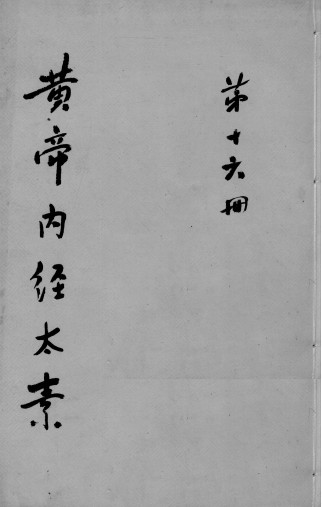 第十六冊
黄帝内经太素